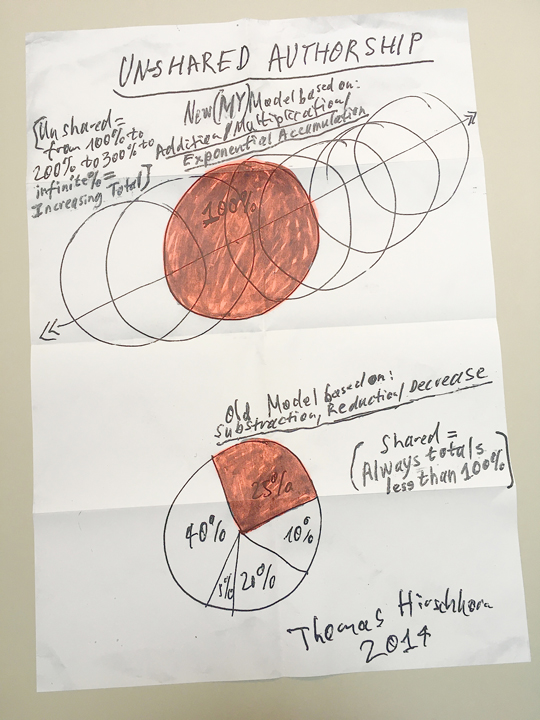 UNSHARED AUTHORSHIP
[Unshared=
from 100% to
200% to 300% to
infinite%=
Increasing Total]
New (MY) Model based on:
Addition/Multiplication/
Exponential Accumulation
100%
Old Model based on:
Substraction, Reduction/Decrease
(Shared=
Always totals
less than 100%)
25%
40%
10%
5%
20%
Thomas Hirschhorn
2014